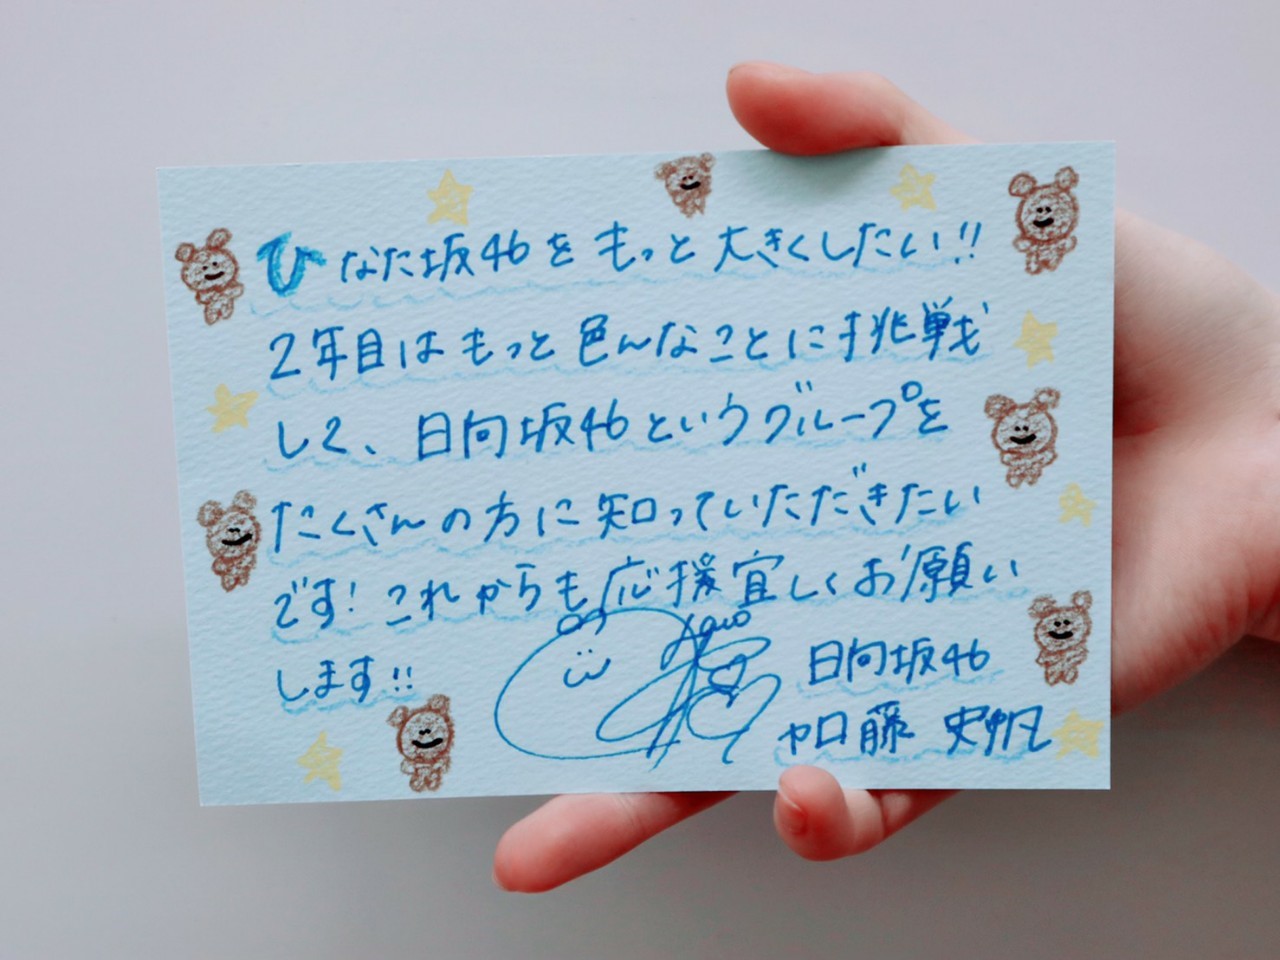 ひなた坂46をもっと大きくしたい!!
2年目はもっと色んなことに挑戦
して、日向坂46というグループを
たくさんの方に知っていただきたい
です!これからも応援宜しくお願い
します!!
日向坂46
加藤 史帆